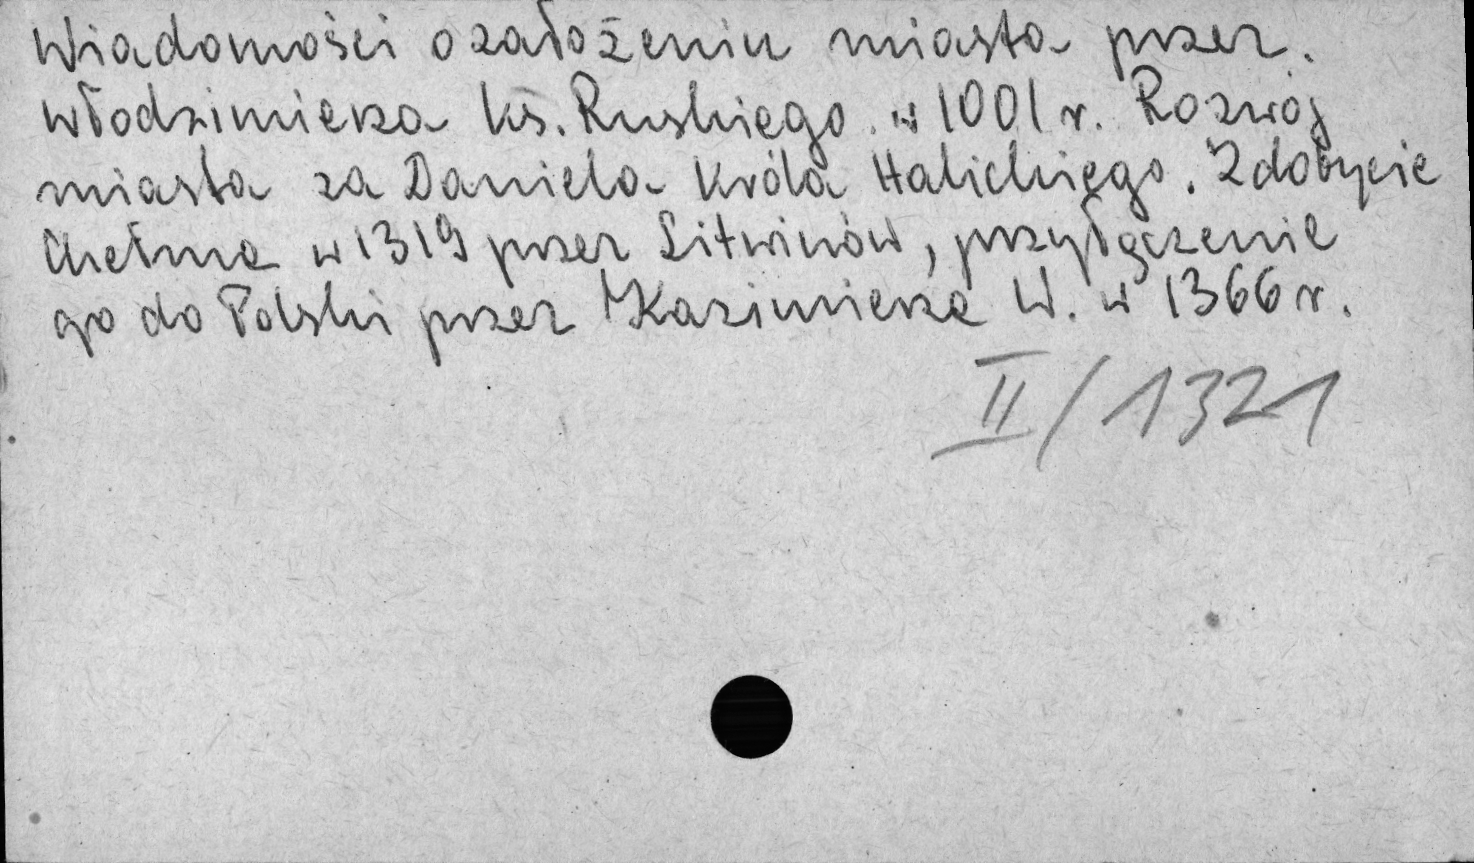 Wiadomości o założeniu miasta przez.
Włodzimierza ks. Ruskiego w 1001 r. Rozwój
miasta za Daniela Króla Halickiego. Zdobycie
Chełma w 1319 przez Litwinów, przyłączenie
go do Polski przez Kazimierza W. w 1366 r.
II/1321